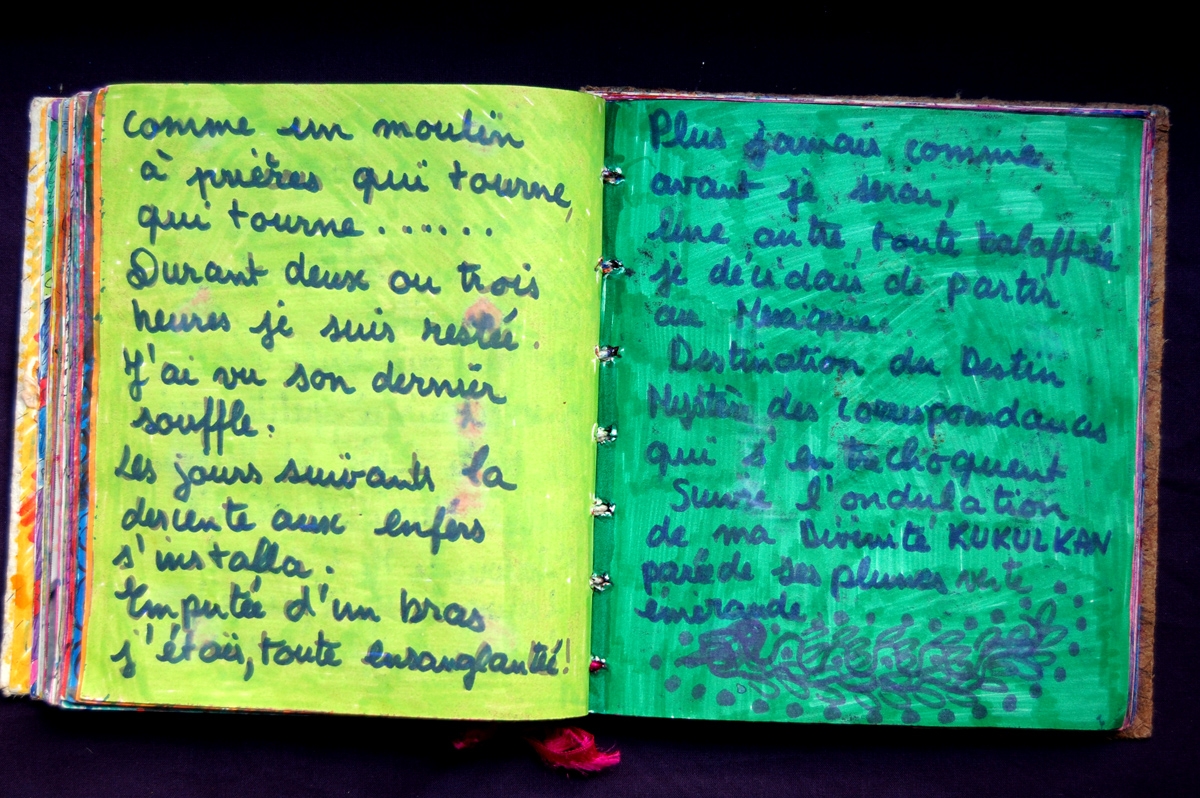 comme un moulin
à prières qui tourne,
qui tourne......
Durant deux ou trois
heures je suis restée.
J'ai vu son dernier
souffle.
Les jours suivants la
descente aux enfers
s'installa.
Emputée d'un bras
j'étais, toute ensanglantée!
Plus jamais comme
avant je serai,
Une autre toute balaffrée
je décidais de partir
au Mexique.
Destination du Destin
Mystère des correspondances
qui s'entrechoquent
Suivre l'ondulation
de ma Divinité KUKULKAN
parée de ses plumes verte
émeraude